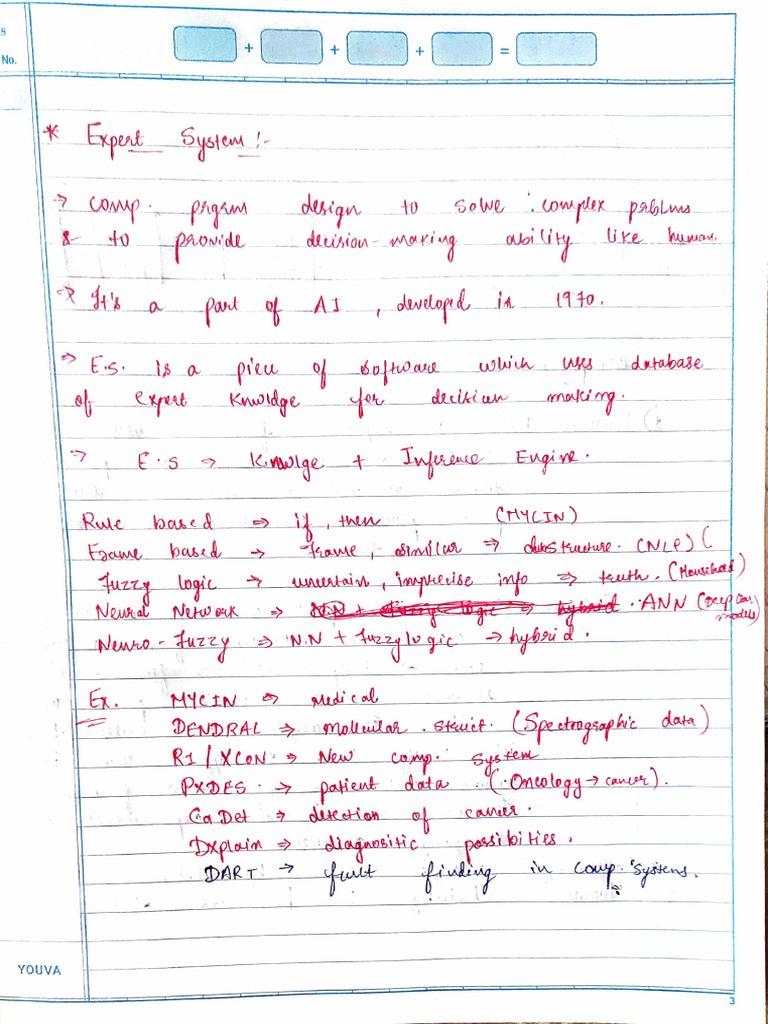 8
No.
+ + + =
* Expert System :-
→ comp. prgrm design to solve complex prblms
& to provide decision-making ability like human.
→ It's a part of AI, developed in 1970.
⇒ E.S. is a piece of software which uses database
of expert knwldge for decision making.
⇒ E.S ⇒ Knwlge + Inference Engine.
Rule based ⇒ if, then (MYCIN)
Frame based → frame, similar ⇒ substructure. (NLP) (
Fuzzy logic → uncertain, imprecise info ⇒ truth. (Household)
Neural Network ⇒ N.N + fuzzy logic ⇒ hybrid. ANN (Deep models)
Neuro-Fuzzy ⇒ N.N + Fuzzy logic → hybrid.
Ex. MYCIN ⇒ Medical
DENDRAL ⇒ mollculars struct. (Spectrographic data)
R1/XCON → New comp. system
PXDES → patient data (Oncology → cancer).
CaDet → detection of cancer.
Dxplain ⇒ diagnositic possibities.
DART → fult finding in comp. systems.
YOUVA
3